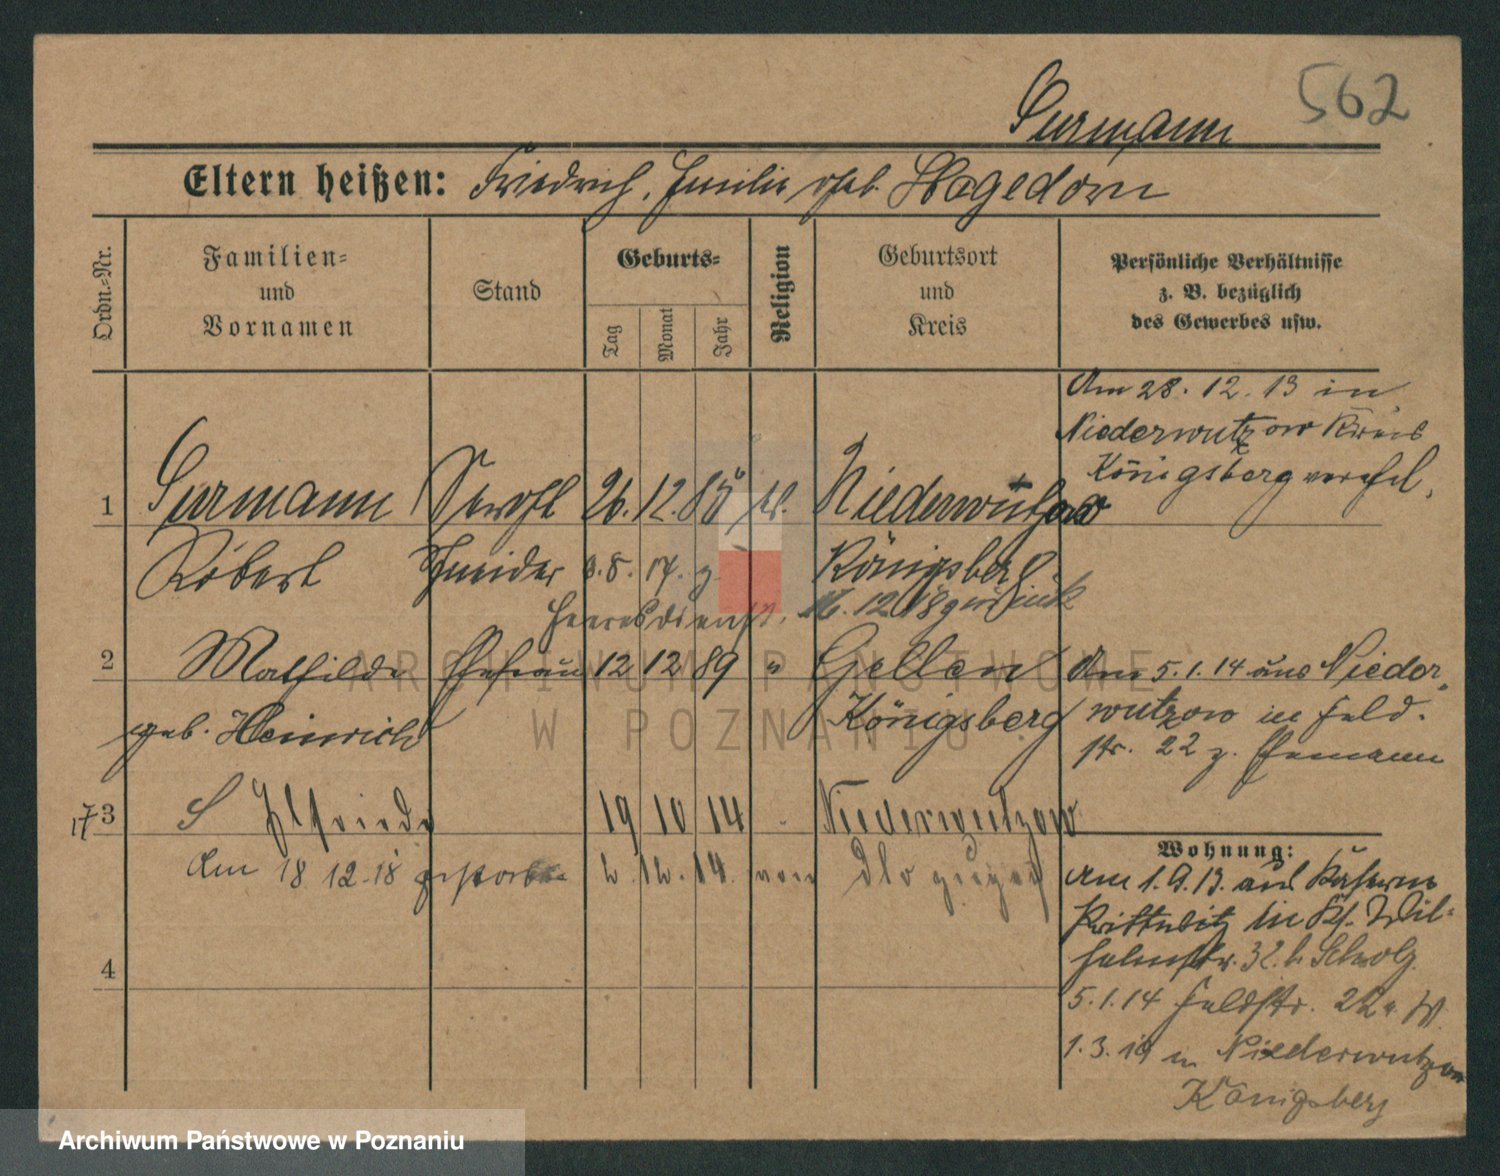 562
Surmann
Eltern heißen: Friedrich, Emilie geb. Hagedorn
Ordn.-Nr.
Familien-
und
Vornamen
Stand
Geburts-
Tag
Monat
Jahr
Religion
Geburtsort
und
Kreis
Persönliche Verhältnisse
z. B. bezüglich
des Gewerbes usw.
Am 28.12.13 in
Niederwutzow Kreis
Königsberg verehel.
1 Surmann 26. 12. 85 Niederwutzow
Robert Schneider 3.8.17. z. Königsberg
Heeresdienst, 16.12.18 zurück
2 Mathilde Ehefrau 12 12 89 " Gellen
geb. Heinrich Königsberg
Am 5.1.14 aus Nieder-
wutzow in Feld-
str. 22 z. Ehemann
17 3 Elfriede 19 10 14 Niederwutzow
Am 18.12.18 gestorben 2.12.14. von zugez.
4
Wohnung:
Am 1.9.13. aus
in Wil-
helmstr. 32 b. Scholz
5.1.14 Feldstr. 22
1.3.19 n Niederwutzow
Königsberg
ARCHIWUM PAŃSTWOWE
W POZNANIU
Archiwum Państwowe w Poznaniu